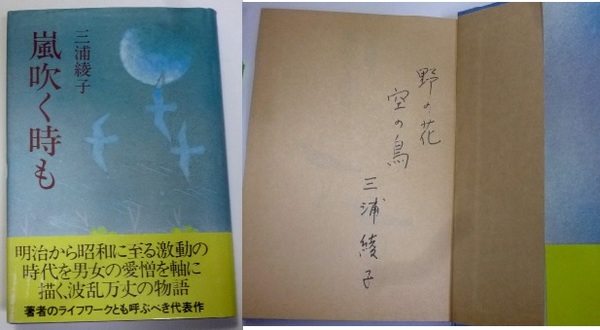 三浦綾子
嵐吹く時も
明治から昭和に至る激動の
時代を男女の愛憎を軸に
描く、波乱万丈の物語
著者のライフワークとも呼ぶべき代表作
野の花
空の鳥
三浦綾子